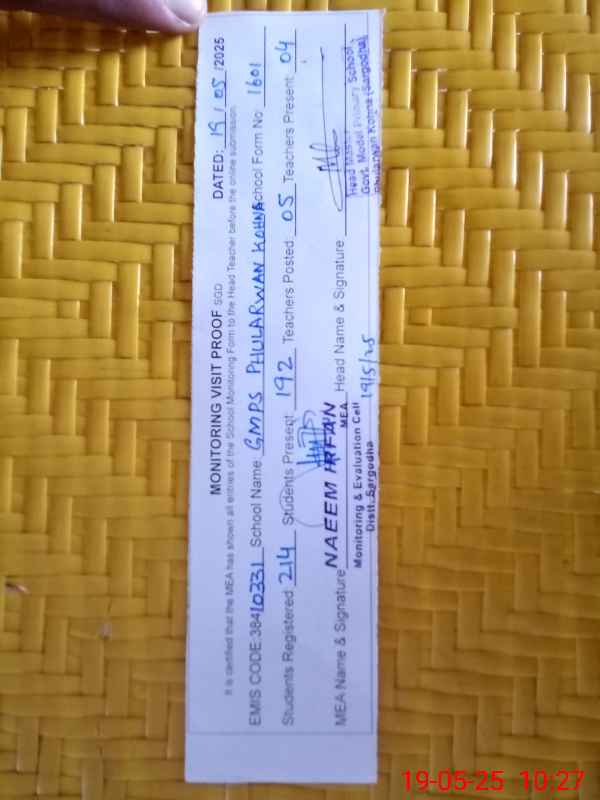 MONITORING VISIT PROOF SGD DATED: 19/05/2025
It is certified that the MEA has shown all entries of the School Monitoring Form to the Head Teacher before the online submission.
EMIS CODE:38410331 School Name: GMPS PHULARWAN KOHNA School Form No: 1601
Students Registered: 214 Students Present: 192 Teachers Posted: 05 Teachers Present: 04
MEA Name & Signature NAEEM IRFAN Head Name & Signature
MEA
Monitoring & Evaluation Cell
Distt. Sargodha
19/5/25
Head Master
Govt. Model Primary School
Phularwan Kohna (Sargodha)
19-05-25 10:27